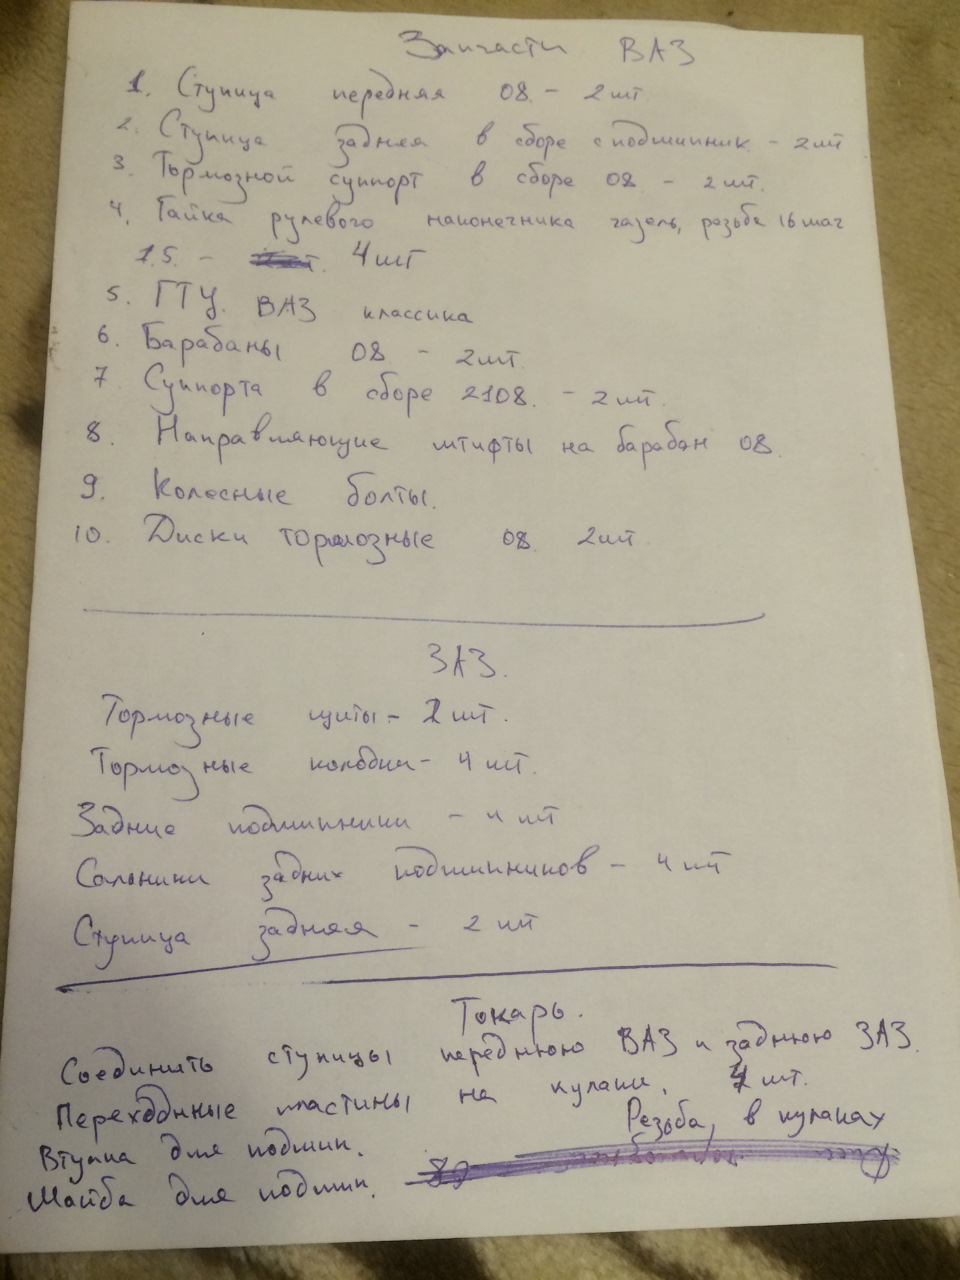 Запчасти ВАЗ
1. Ступица передняя 08 - 2шт
2. Ступица задняя в сборе с подшипник - 2шт
3. Тормозной суппорт в сборе 08 - 2шт.
4. Гайка рулевого наконечника газель, резьба 16 шаг
1.5. - 4шт
5. ГТЦ. ВАЗ классика
6. Барабаны 08 - 2шт.
7. Суппорта в сборе 2108. - 2шт.
8. Направляющие штифты на барабан 08.
9. Колесные болты.
10. Диски тормозные 08. 2шт
ЗАЗ.
Тормозные щиты - 2 шт.
Тормозные колодки - 4 шт.
Задние подшипники - 4 шт
Сальники задних подшипников - 4 шт
Ступица задняя - 2 шт
Токарь.
Соединить ступицы переднюю ВАЗ и заднюю ЗАЗ.
Переходные пластины на кулаки. 4 шт.
Втулка для подшип. Резьба, в кулаках
Шайба для подшип.